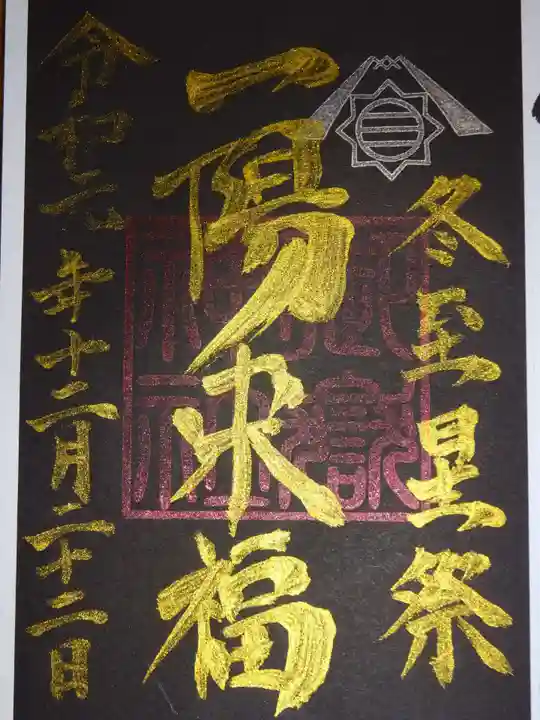 冬至星祭
一陽来福
令和六年十二月二十二日